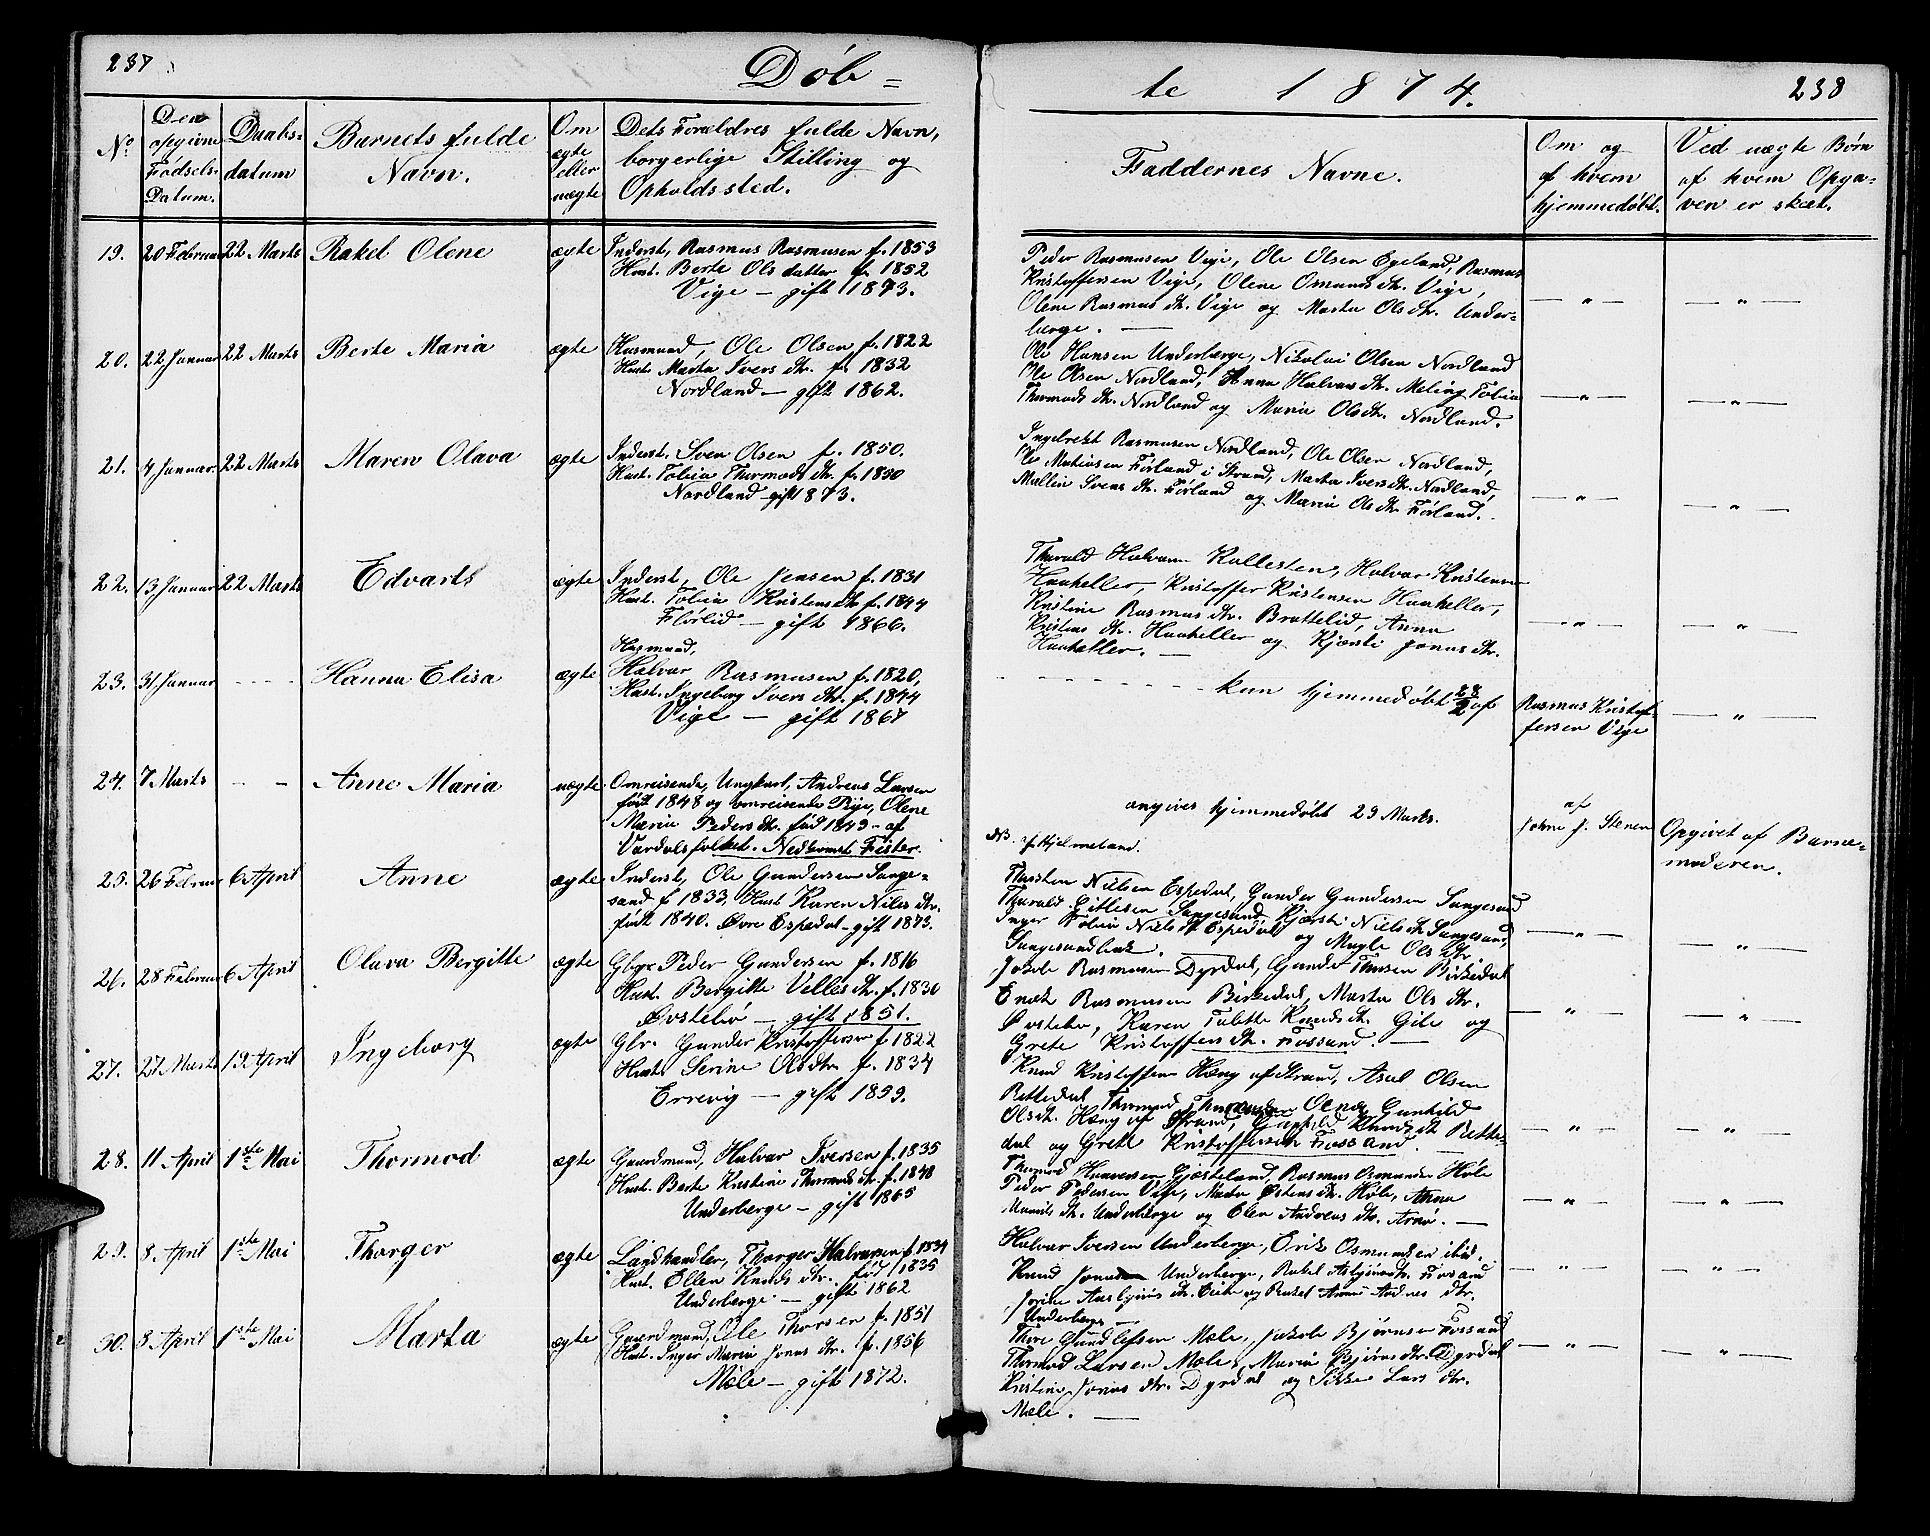 237
Døb=
te 1874.
238
No
Den opgivne Fødsels Datum.
Daabs-datum
Barnets fulde Navn.
Om ægte eller uægte
Dets Forældres fulde Navn, borgerlige Stilling og Opholdssted.
Faddernes Navne.
Om og af hvem hjemmedøbt.
Ved uægte Børn af hvem Opga=ven er skeet.
19. 20 Februar 22 Marts Rakel Olene ægte Inderst, Rasmus Rasmussen f. 1853
Hust. Berte Olsdatter f. 1852
Vige — gift 1873.
Peder Rasmussen Vige, Ole Olsen Øgeland, Rasmus
Kristoffersen Vige, Olene Omundsdtr. Vige,
Olene Rasmusdtr. Vige og Marta Olsdtr. Under=
berge. —
— " — — " —
20. 22 Januar 22 Marts Berte Maria ægte Husmand, Ole Olsen f. 1822
Hust. Marta Iversdtr. f. 1832
Nordland — gift 1862.
Ole Hansen Underberge, Nikolai Olsen Nordland
Ole Olsen Nordland, Anna Halvarsdtr. Meling, Tobia
Thormodsdtr. Nordland og Maria Olsdtr. Nordland.
— " — — " —
21. 4 Januar 22 Marts Maren Olava ægte Inderst. Sven Olsen f. 1850.
Hust. Tobia Thormodsdtr. f. 1850
Nordland gift 1873.
Ingebrekt Rasmusen Nordland, Ole Olsen Nordland,
Ole Matiasen Førland i Strand, Marta Iversdtr. Nordland,
Mallin Svensdtr. Førland og Maria Olsdtr. Førland.
— " — — " —
22. 13 Januar 22 Marts Edvarts ægte Inderst, Ole Jensen f. 1831
Hust. Tobia Kristensdtr f. 1844
Flørlid — gift 1866.
Thorald Halvarsen Kallesten, Halvar Kristensen
Haaheller, Kristoffer Kristensen Haaheller,
Kristine Rasmusdtr. Brattelid, Anna
Kristensdtr. Haaheller og Kjersti Jonasdtr.
Haaheller. —
— " — — " —
23. 31 Januar - - - Hanna Elisa ægte Husmand,
Halvar Rasmusen f. 1820,
Hust. Ingeborg Iversdtr. f. 1844
Vige — gift 1867
kun hjemmedøbt 28/2 af
Rasmus Kristof-
fersen Vige
— " —
24. 7 Marts - - Anne Maria uægte Omreisende, Ungkarl, Andreas Larsen
født 1848 og omreisende Pige, Olene
Maria Pedersdtr. født 1849 - af
Vardalsfolket. Nedkomst Fister.
angives hjemmedøbt 29 Marts.
NB. i Hjelmeland.
af
John J. Stenen
Opgivet af Barne=
moderen.
25. 26 Februar 6 April Anne ægte Inderst, Ole Gundersen Sange=
sand f 1833, Hust Karen Nilsdtr.
født 1840. Øvre Espedal - gift 1873.
Thorsten Nielsen Espedal, Gunder Gundersen Sangesand
Thorald Gitlesen Sangesand, Kjersti Nielsdtr Sangesand,
Inger Tobia Nielsdtr Espedal og Magle Olsdtr
Sangesandbak.
— " — — " —
26. 28 Februar 6 April Olava Bergitte ægte Gbgr Peder Gundersen f. 1816
Hust. Bergitte Vellesdtr. f. 1830
Østebø — gift 1851.
Jakob Rasmusen Dyrdal, Gunder Thorsen Birkedal
Enok Rasmusen Birkedal, Marta Olsdtr.
Østebø, Karen Tabette Knudsdtr. Gile og
Grete Kristoffersdtr. Fossand. —
— " — — " —
27. 27 Marts 12 April Ingeborg ægte Gbr. Gunder Kristoffersen f. 1822
Hust. Serine Olsdtr f. 1834
Errevig — gift 1859.
Knud Kristoffersen Hæng af Strand, Asal Olsen
Rettedal Thormod Olsdtr. Hæng af Strand, Knudsdtr Rette=
dal og Grete Kristoffersen Fossand.
— " — — " —
28. 11 April 1ste Mai Thormod ægte Gaardmand, Halvar Iversen f. 1835
Hust. Berte Kristine Thormodsdtr. f. 1840
Underberge — gift 1865
Thormod Haaversen Gjesteland, Rasmus Osmundsen Høle
Peder Pedersen Vige, Marta Østensdtr. Høle, Anna
Underberge og Elen Andreasdtr. Arnø. —
— " — — " —
29. 8. April 1ste Mai Thorger ægte Landhandler, Thorger Halvarsen f. 1834
Hust. Ellen Knudsdtr. født 1835
Underberge. — gift 1862
Halvar Iversen Underberge, Erik Osmundsen ibid.
Knud Jonassen Underberge, Rakel Asbjørnsdtr. Fossand
Underberge —
— " — — " —
30. 8 April 1ste Mai Marta ægte Gaardmand, Ole Thorsen f. 1851
Hust. Inger Maria Jonasdtr. f. 1856
Mæle — gift 1872.
Thore Gundlefsen Mæle, Jakob Bjørnsen Fossand
Thormod Larsen Mæle, Maria Bjørnsdtr. Dyrdal
Kristine Jonasdtr. Dyrdal og Sikke Larsdtr.
Mæle. —
— " — — " —